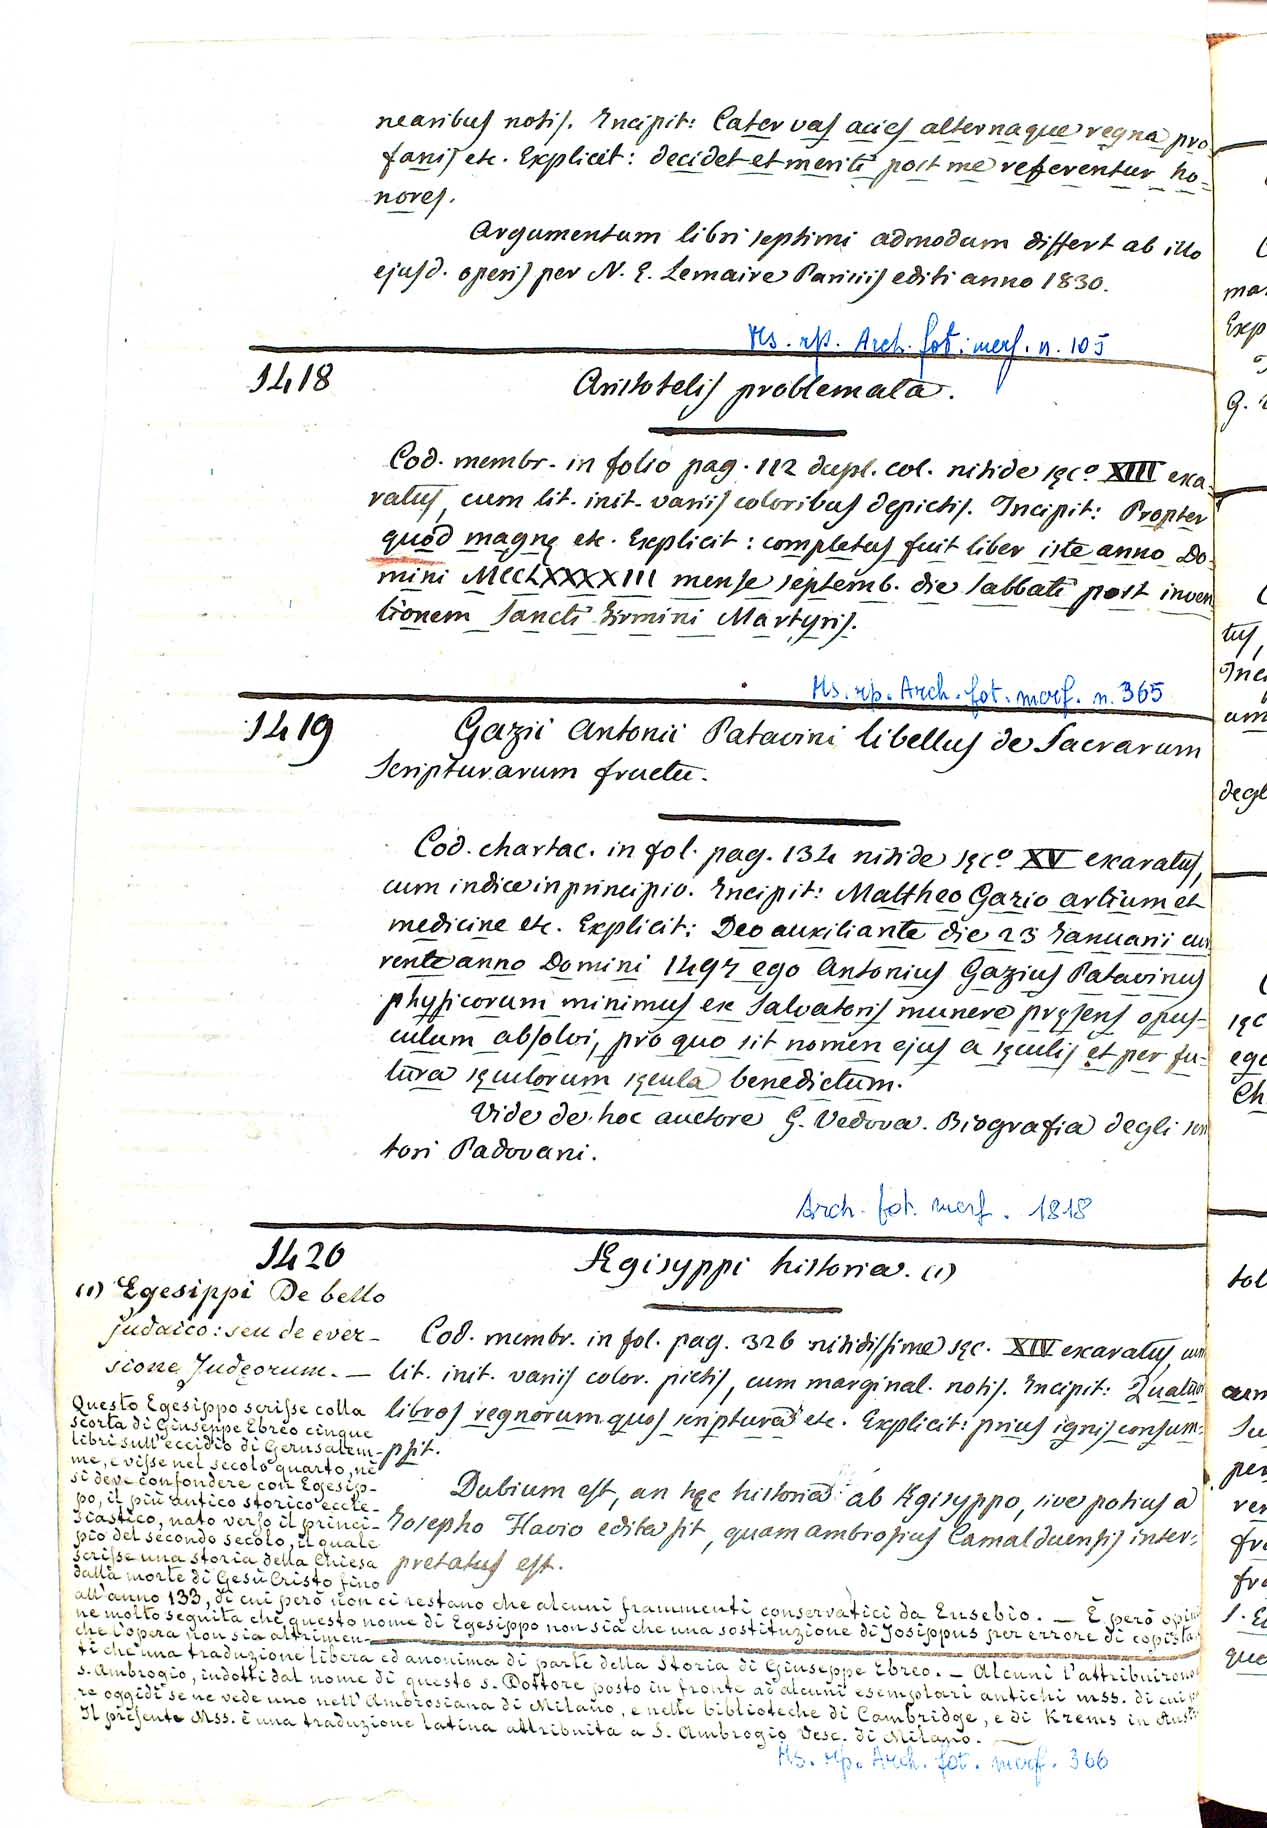 nearibus notis. Incipit: Catervas acies alternaque regna pro
fanis etc. Explicit: decidet et meriti post me referentur ho=
nores.
Argumentum libri septimi admodum differt ab illo
ejusd. operis per N. E. Lemaire Parisiis editi anno 1830.
Ms. rp. Arch. fot. merf. n. 105
1418
Aristotelis problemata.
Cod. membr. in folio pag. 112 dupl. col. nitide sęc.º XIII exa-
ratus, cum lit. init. variis coloribus depictis. Incipit: Propter
quod magnę etc. Explicit: completus fuit liber iste anno Do-
mini MCCLXXXXIII mense septemb. die sabbati post inven
tionem Sancti Firmini Martyris.
Ms. rp. Arch. fot. merf. n. 365
1419
Gazii Antonii Patavini libellus de Sacrarum
Scripturarum fructu.
Cod. chartac. in fol. pag. 134 nitide sęc.º XV exaratus,
cum indice in principio. Incipit: Mattheo Gazio artium et
medicine etc. Explicit: Deo auxiliante die 23 Januarii cur
rente anno Domini 1497 ego Antonius Gazius Patavinus
physicorum minimus ex Salvatoris munere pręsens opus-
culum absolvi, pro quo sit nomen ejus a sęculis et per fu-
tura sęculorum sęcula benedictum.
Vide de hoc auctore G. Vedova. Biografia degli scri
tori Padovani.
Arch. fot. merf. 1818
1420
Ægisyppi historia. (1)
Cod. membr. in fol. pag. 326 nitidissime sęc. XIV exaratus, cum
lit. init. variis color. pictis, cum marginal. notis. Incipit: Quatuor
libros regnorum quos scriptura etc. Explicit: prius ignis consum-
psit.
Dubium est, an hęc historia ab Ægisyppo, sive potius a
Josepho Flavio edita sit, quam ambrosius Camalduensis inter-
pretatus est.
(1) Egesippi De bello
judaico: seu de ever-
sione Judęorum. —
Questo Egesippo scrisse colla
scorta di Giuseppe Ebreo cinque
libri sull'eccidio di Gerusalem-
me, e visse nel secolo quarto, nè
si deve confondere con Egesip-
po, il più antico storico eccle-
siastico, nato verso il princi-
pio del secondo secolo, il quale
scrisse una storia della Chiesa
dalla morte di Gesù Cristo fino
all'anno 133, di cui però non ci restano che alcuni frammenti conservatici da Eusebio. — È però opin
ne molto seguita che questo nome di Egesippo non sia che una sostituzione di Josippus per errore di copista
che l'opera non sia altrimen-
ti che una traduzione libera ed anonima di parte della Storia di Giuseppe Ebreo. — Alcuni l'attribuirono
s. Ambrogio, indotti dal nome di questo s. Dottore posto in fronte ad alcuni esemplari antichi mss. di cui
re oggidì se ne vede uno nell'Ambrosiana di Milano, e nelle biblioteche di Cambridge, e di Krems in Aust
Il presente Mss. è una traduzione latina attribuita a S. Ambrogio Vesc. di Milano.
Ms. rp. Arch. fot. merf. 366
ma
Exp
G.
tus,
Inci
um
degl
sęc
ego
Ch
tol
aum
per
ver
fra
qua